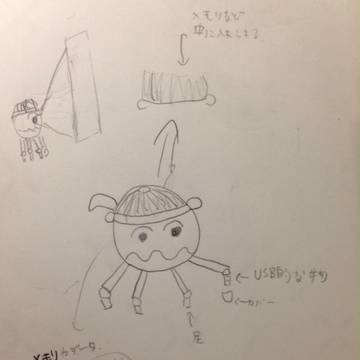 メモリなど
中に入れられる
← USB的な物
←カバー
足
メモリカデータ